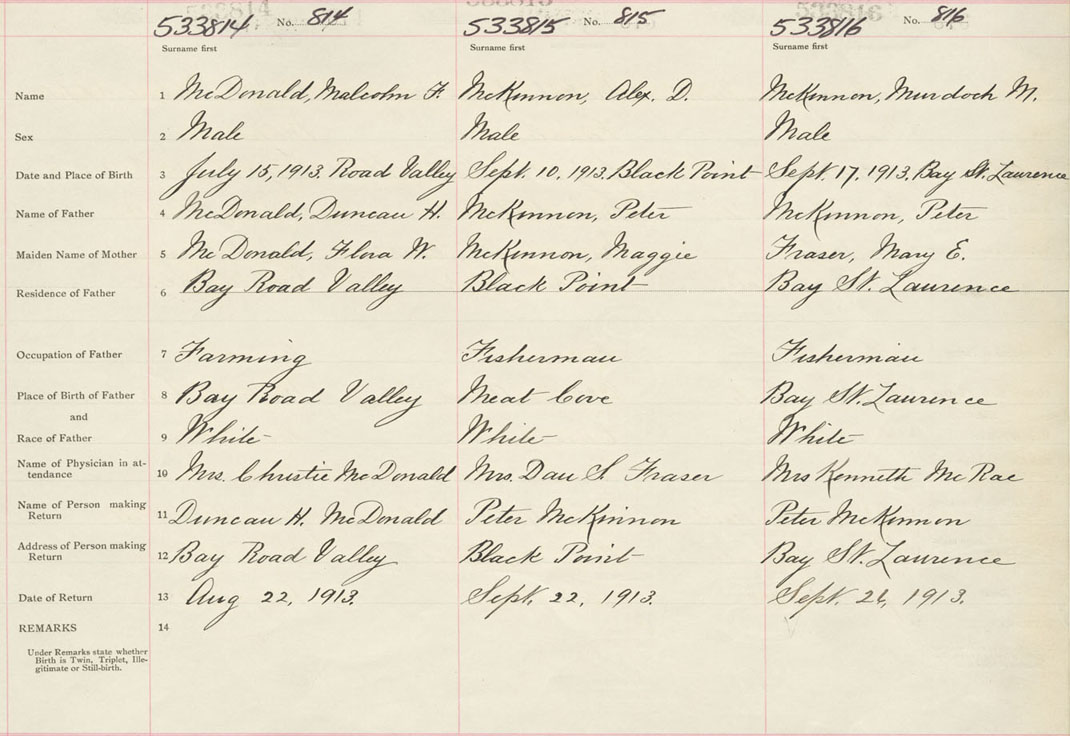 533814 No. 814 533815 No. 815 533816 No. 816
Surname first Surname first Surname first
Name 1 McDonald, Malcolm F. McKinnon, Alex. D. McKinnon, Murdoch M.
Sex 2 Male Male Male
Date and Place of Birth 3 July 15, 1913. Road Valley Sept. 10, 1913. Black Point Sept. 17, 1913. Bay St. Laurence
Name of Father 4 McDonald, Duncan H. McKinnon, Peter McKinnon, Peter
Maiden Name of Mother 5 McDonald, Flora W. McKinnon, Maggie Fraser, Mary E.
Residence of Father 6 Bay Road Valley Black Point Bay St. Laurence
Occupation of Father 7 Farming Fisherman Fisherman
Place of Birth of Father 8 Bay Road Valley Meat Cove Bay St. Laurence
and
Race of Father 9 White White White
Name of Physician in at-
tendance 10 Mrs. Christie McDonald Mrs. Dan S. Fraser Mrs Kenneth McRae
Name of Person making
Return 11 Duncan H. McDonald Peter McKinnon Peter McKinnon
Address of Person making
Return 12 Bay Road Valley Black Point Bay St. Laurence
Date of Return 13 Aug 22, 1913. Sept. 22, 1913. Sept. 26, 1913.
REMARKS 14
Under Remarks state whether
Birth is Twin, Triplet, Ille-
gitimate or Still-birth.